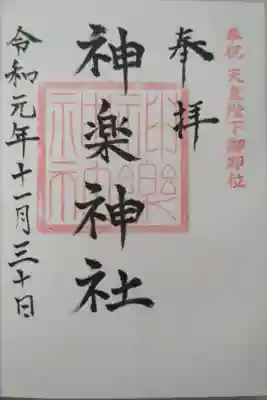 奉祝 天皇陛下御即位
奉拝
神楽神社
令和元年十一月三十日